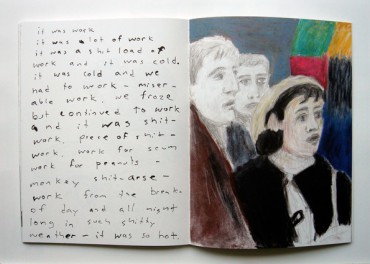 it was work
it was a lot of work
it was a shit load of
work and it was cold.
it was cold and we
had to work - miser-
able work. we froze
but continued to work
and it was shit-
work, piece of shit-
work. work for scum
work for peanuts -
monkey shit-arse -
work from the break-
of day and all night
long in such shitty
weather - it was so hot.